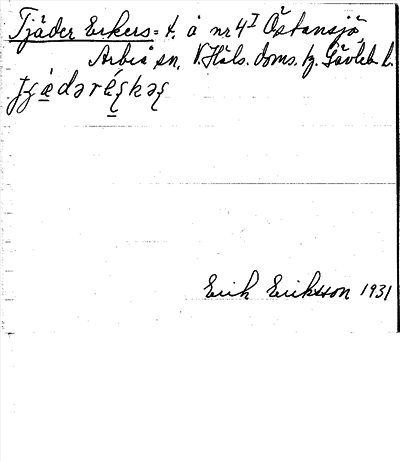 Tjäder Erkers = t. å nr 4ᴵ Östansjö,
Arbrå sn, V. Häls. doms. tg. Gävleb. l.
Erik Eriksson 1931